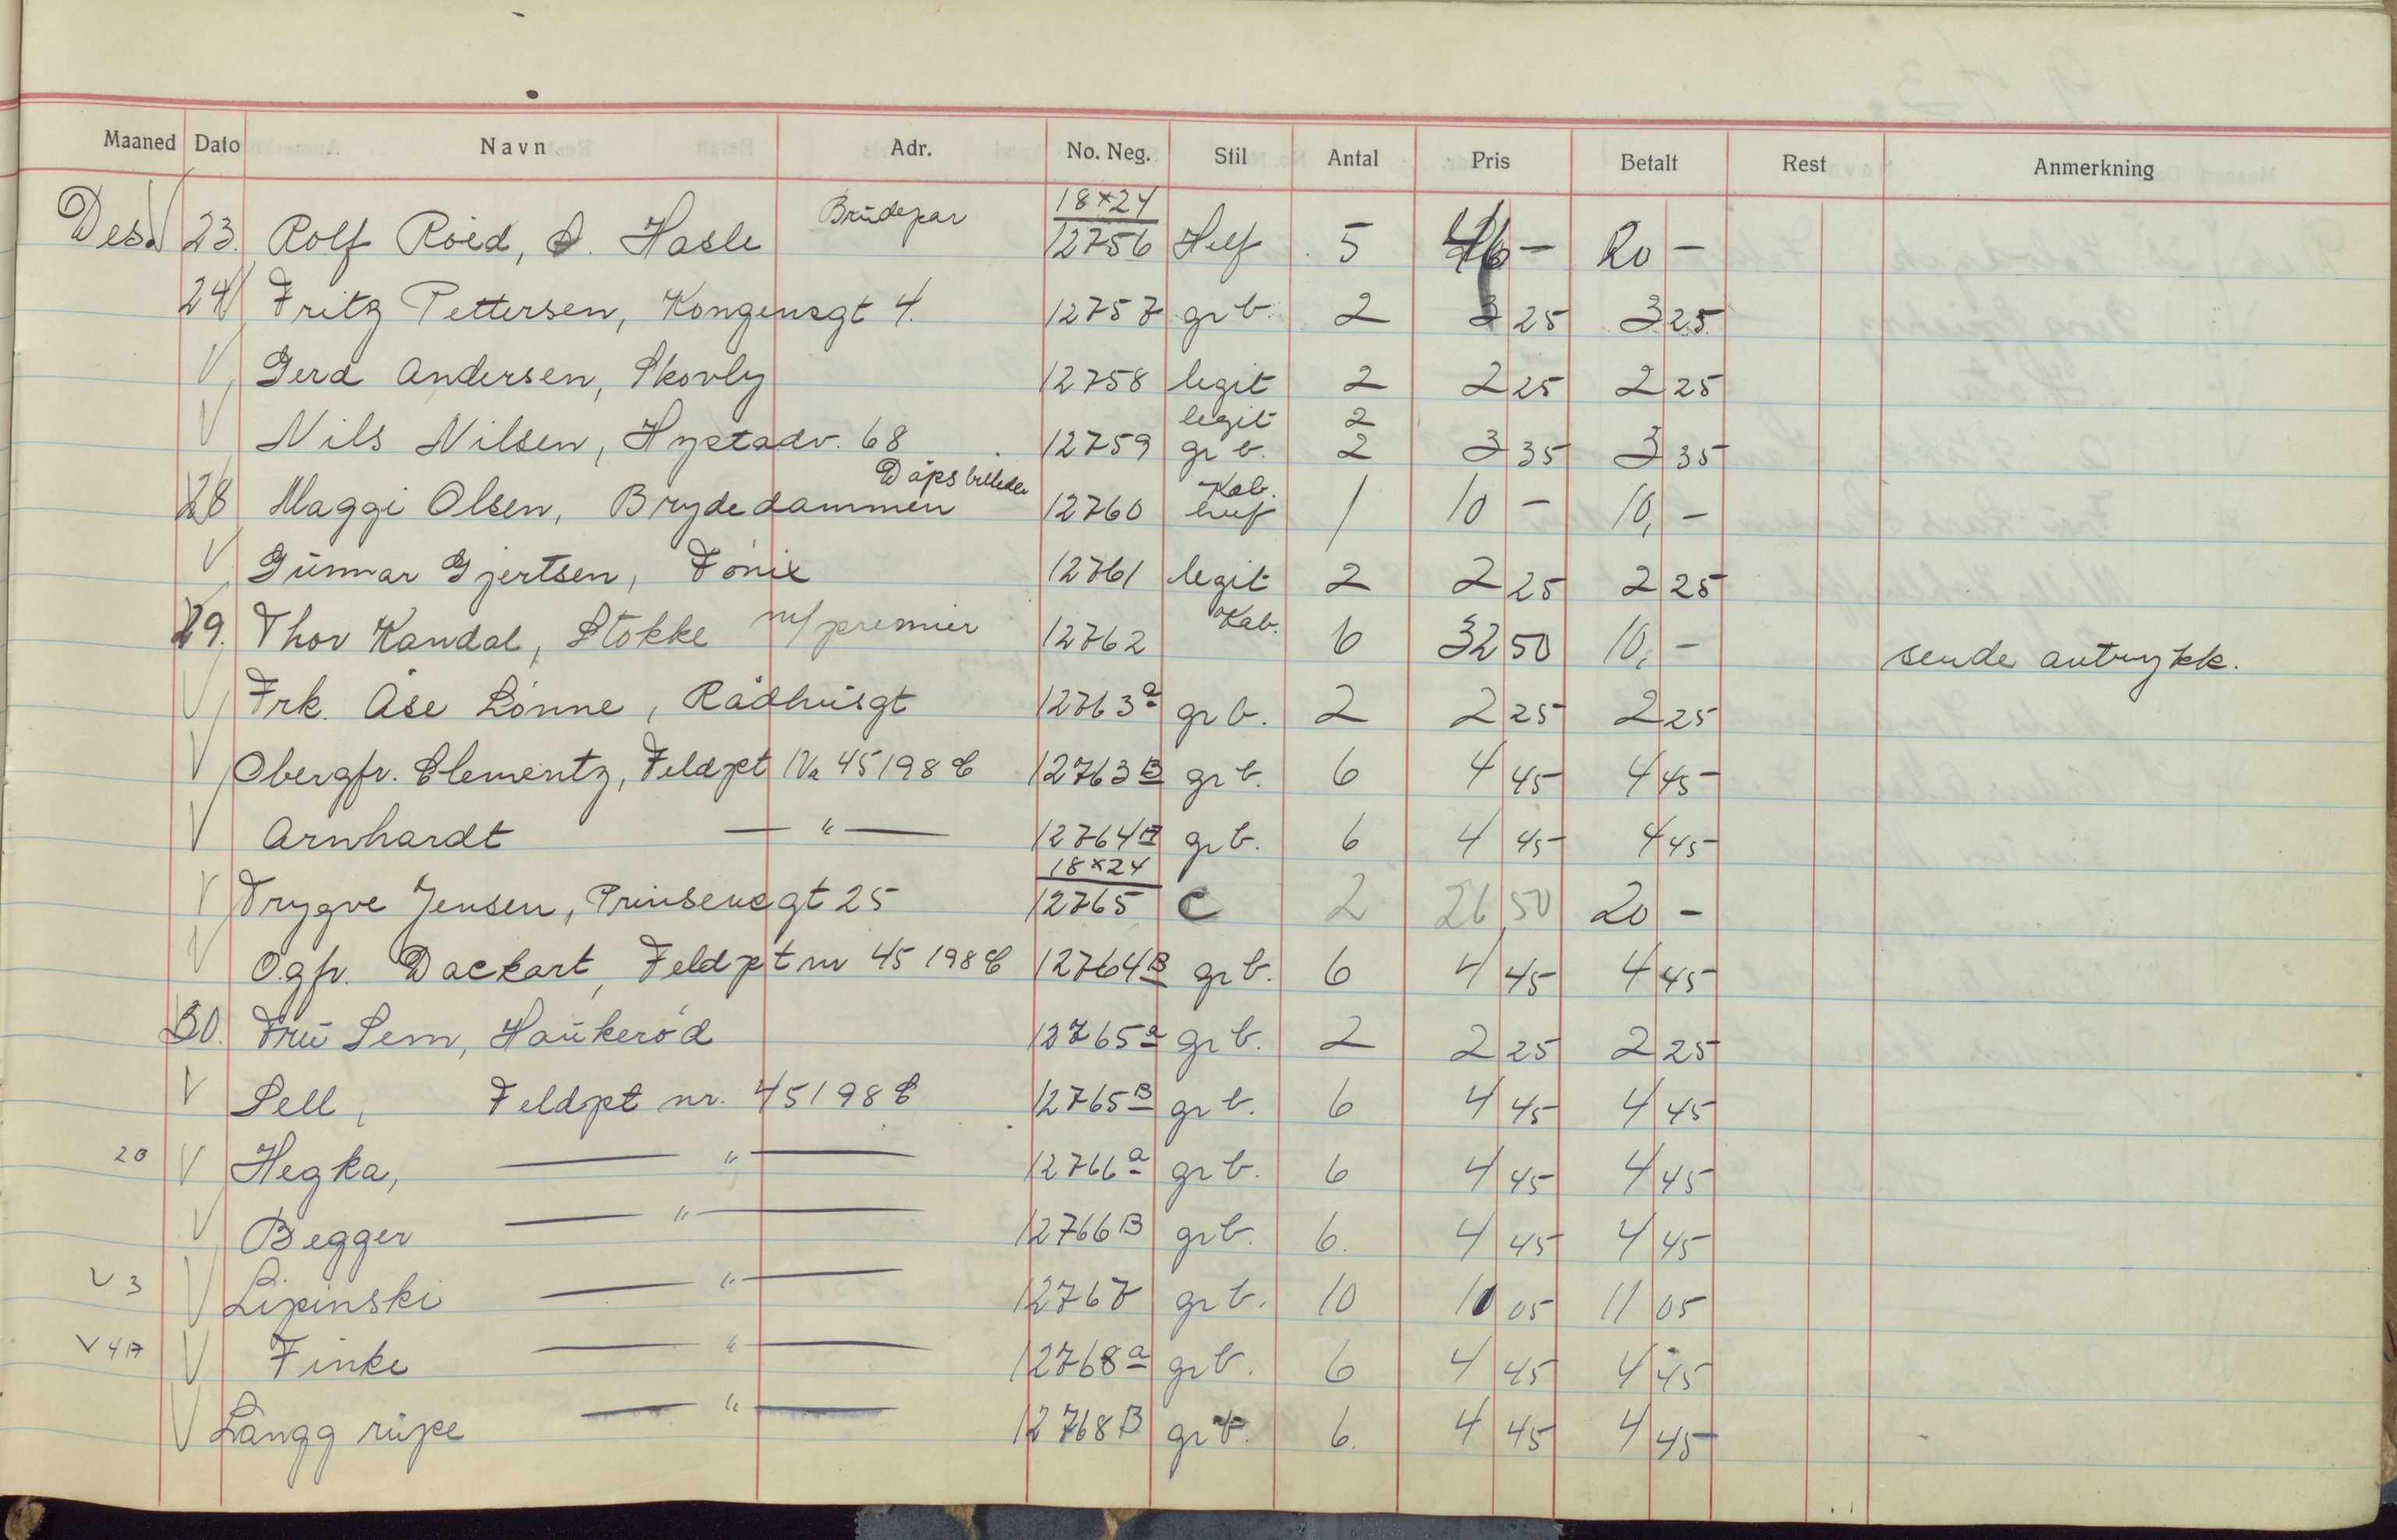 Maaned Dato Navn Adr. No. Neg. Stil Antal Pris Betalt Rest Anmerkning
Des. 23. Rolf Röed, S. Hasle Brüdepar 18x24 12756 Helf 5 46 - 20 -
24 Fritz Pettersen, Kongensgt 4. 12757 gr b. 2 3 25 3 25
V Gerd Andersen, Skovly 12758 legit 2 2 25 2 25
legit 2
V Nils Nilsen, Hystadv. 68 12759 gr b. 2 3 35 3 35
Dåpsbilleder Kab.
28 Maggi Olsen, Brydedammen 12760 1 10 - 10, -
V Günnar Gjertsen, Fönix 12761 legit 2 2 25 2 25
29. Thor Kandal, Stokke m/premier 12762 Kab. 6 32 50 10, - sende avtrykk.
V Frk. Åse Lönne, Rådhüsgt 12763a gr b. 2 2 25 2 25
V Obergfr. Clementz, Feldpt No 45198 C 12763B gr b. 6 4 45 4 45
V Arnhardt — " — 12764a gr b. 6 4 45 4 45
18x24
V Trygve Jensen, Prinsensgt 25 12765 C 2 26 50 20 -
V O.gfr. Dackart, Feldpt nr 45198 C 12764B gr b. 6 4 45 4 45
30. Frü Sem, Haükeröd 12765a gr b. 2 2 25 2 25
V Sell, Feldpt nr. 45198 C 12765B gr b. 6 4 45 4 45
20 V Hegka, — " — 12766a gr b. 6 4 45 4 45
V Begger — " — 12766B gr b. 6. 4 45 4 45
V 3 V Lipinski — " — 12767 gr b. 10 11 05 11 05
V 4A V Finke — " — 12768a gr b. 6 4 45 4 45
V Langg rüpe — " — 12768B gr b. 6. 4 45 4 45